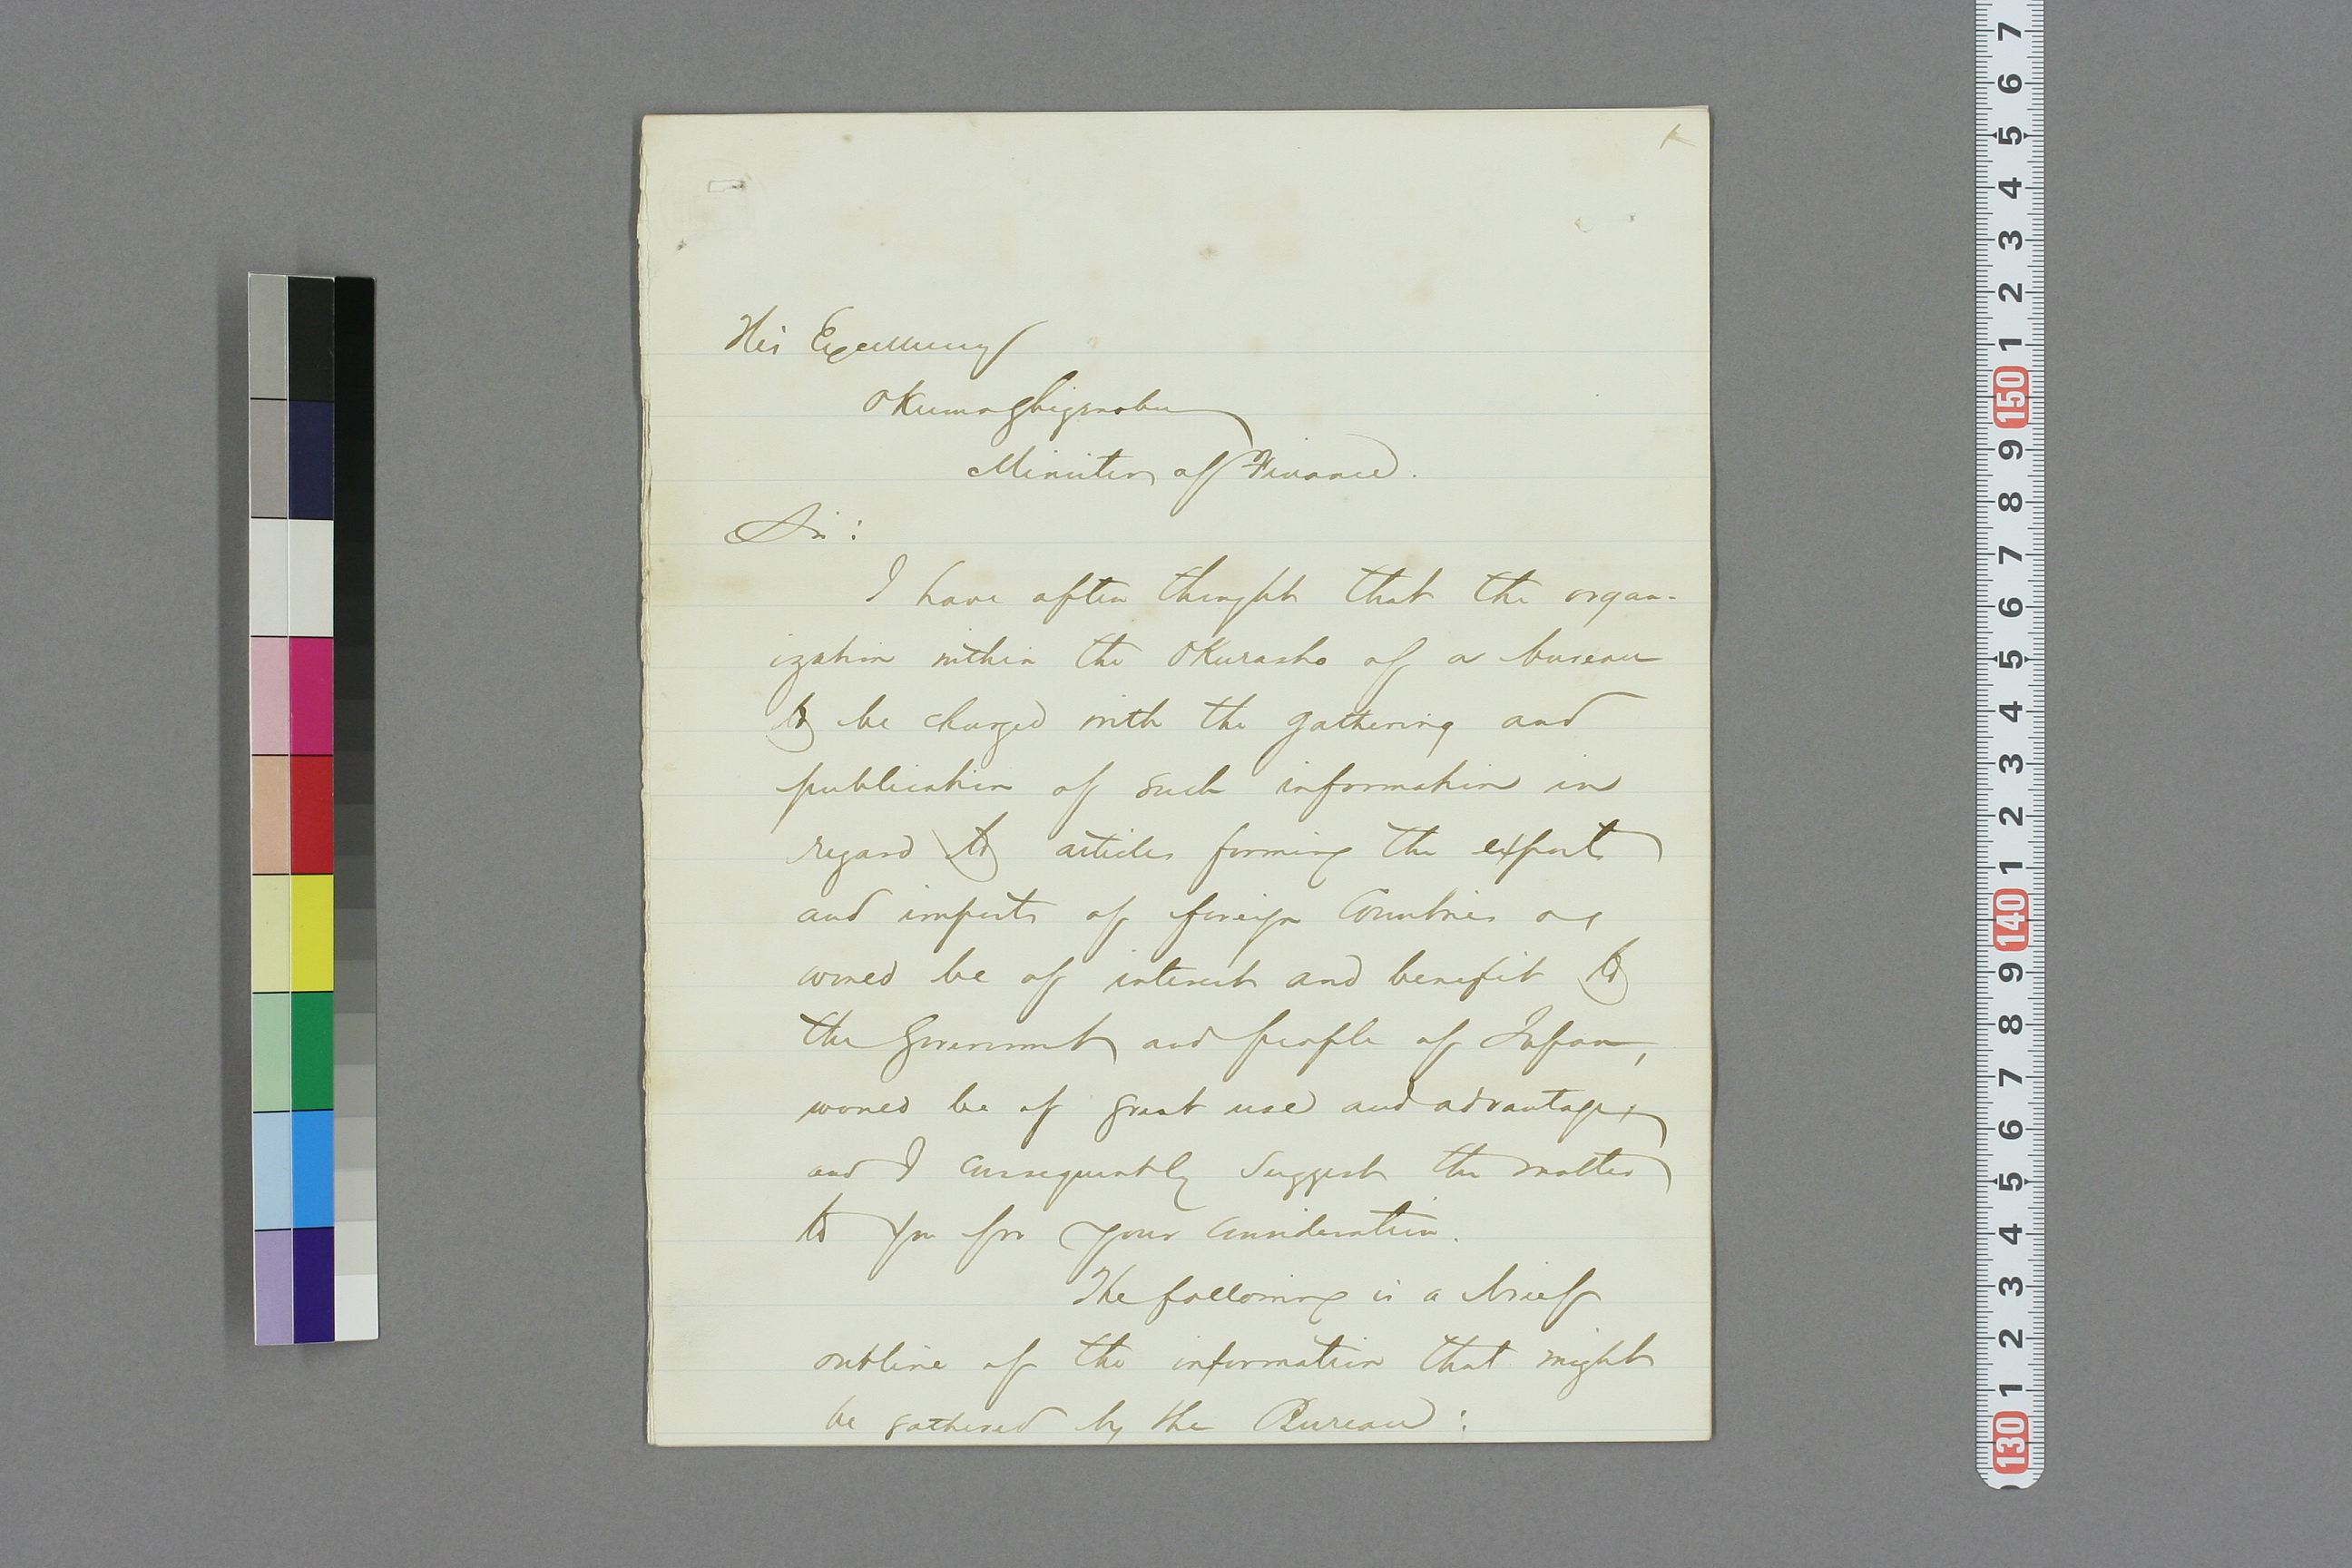 His Excellency
Okuma Shigenobu
Minister of Finance.
Sir:
I have often thought that the organ-
ization within the Okurasho of a bureau
to be charged with the gathering and
publication of such information in
regard to articles forming the exports
and imports of foreign Countries as
would be of interest and benefit to
the Government and people of Japan,
would be of great use and advantage,
and I consequently suggest the matter
to you for your consideration.
The following is a brief
outline of the information that might
be gathered by the Bureau:
7
6
5
4
3
2
1
150
9
8
7
6
5
4
3
2
1
140
9
8
7
6
5
4
3
2
1
130